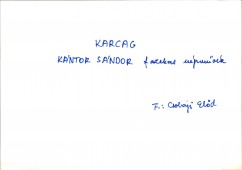 KARCAG
KÁNTOR SÁNDOR fazekas népművész
F.: Csobaji Előd